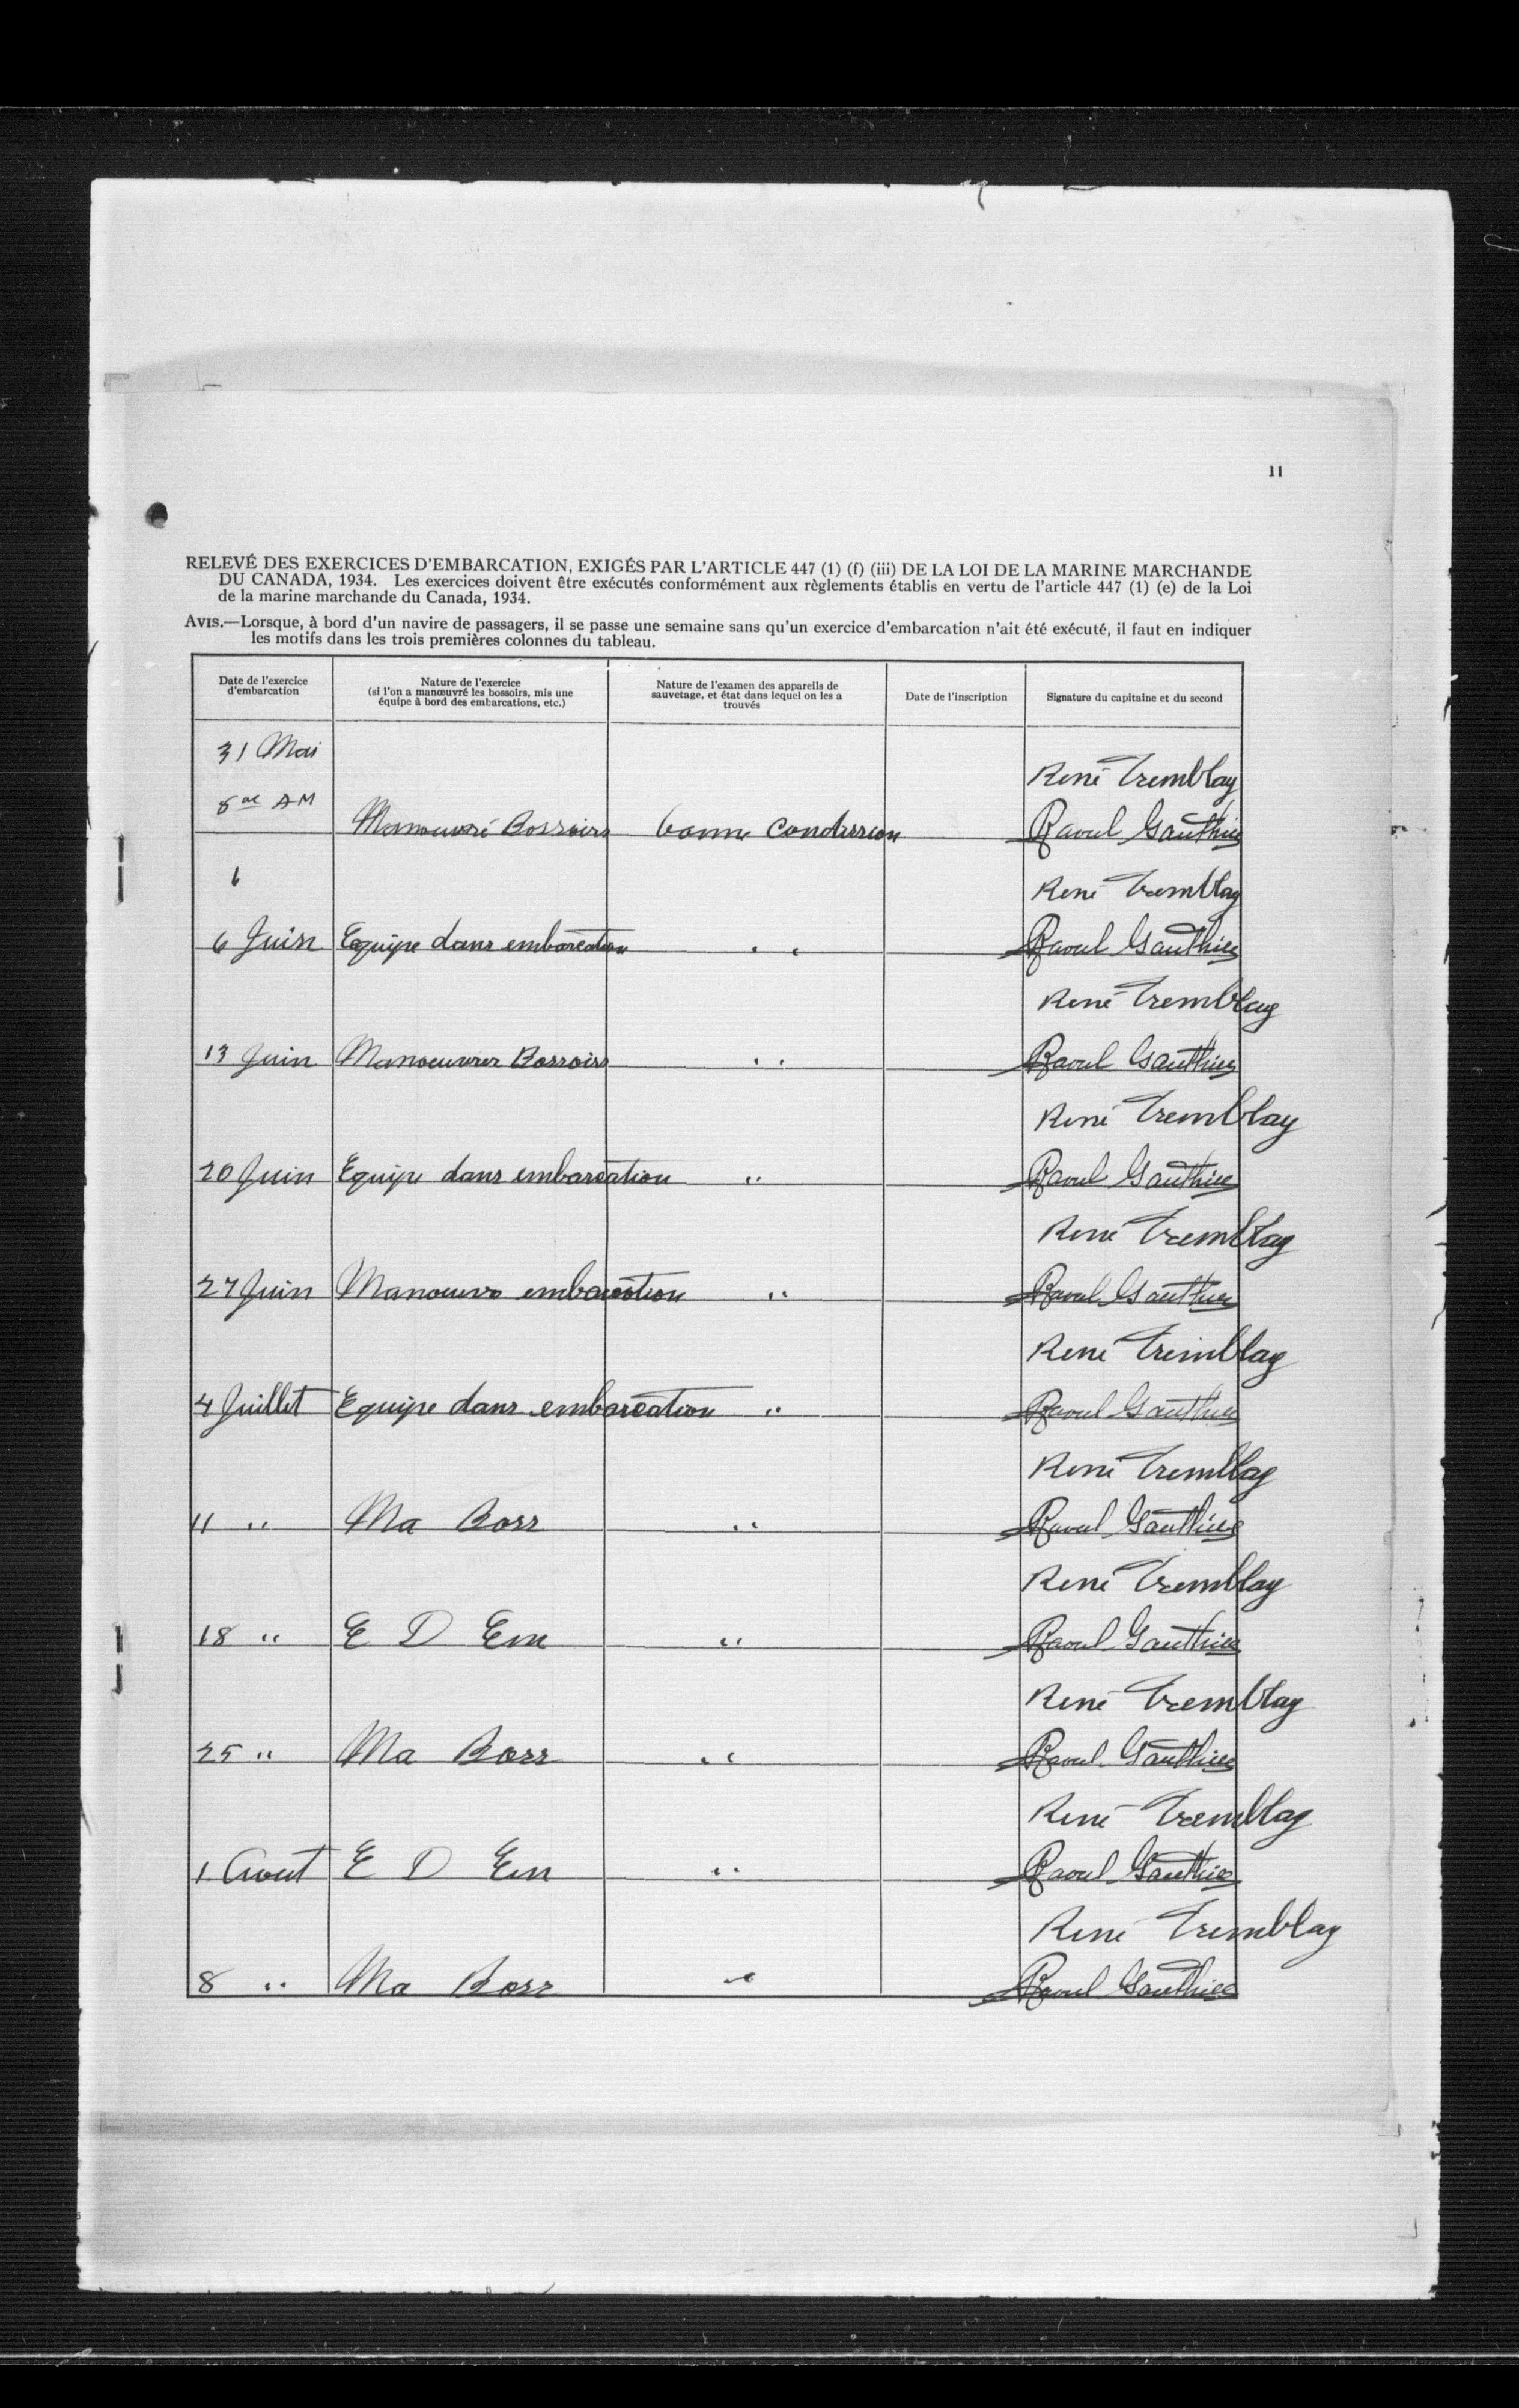 11
RELEVÉ DES EXERCICES D'EMBARCATION, EXIGÉS PAR L'ARTICLE 447 (1) (f) (iii) DE LA LOI DE LA MARINE MARCHANDE
DU CANADA, 1934. Les exercices doivent être exécutés conformément aux règlements établis en vertu de l'article 447 (1) (e) de la Loi
de la marine marchande du Canada, 1934.
AVIS.—Lorsque, à bord d'un navire de passagers, il se passe une semaine sans qu'un exercice d'embarcation n'ait été exécuté, il faut en indiquer
les motifs dans les trois premières colonnes du tableau.
Date de l'exercice
d'embarcation
Nature de l'exercice
(si l'on a manœuvré les bossoirs, mis une
équipe à bord des embarcations, etc.)
Nature de l'examen des appareils de
sauvetage, et état dans lequel on les a
trouvés
Date de l'inscription
Signature du capitaine et du second
31 Mai
René Tremblay
AM
Manouvré Bossoirs bonne Condission Raoul Gauthier
René Tremblay
6 Juin Equipe dans embarcation " Raoul Gauthier
René Tremblay
13 Juin Manoeuvrer Bossoirs " Raoul Gauthier
René Tremblay
20 Juin Equipe dans embarcation " Raoul Gauthier
René Tremblay
27 Juin Manouvre embarcation " Raoul Gauthier
René Tremblay
4 Juillet Equipe dans embarcation " Raoul Gauthier
René Tremblay
11 " Ma Boss " Raoul Gauthier
René Tremblay
18 " E D Em " Raoul Gauthier
René Tremblay
25 " Ma Boss " Raoul Gauthier
René Tremblay
1 Aout E D Em " Raoul Gauthier
René Tremblay
8 " Ma Boss " Raoul Gauthier